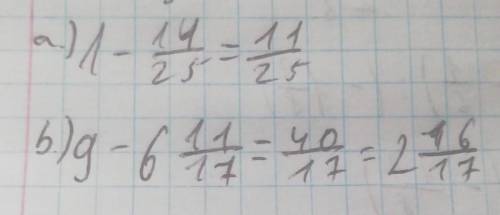 a.) 1 - 14/25 = 11/25
b.) 9 - 6 11/17 = 40/17 = 2 16/17